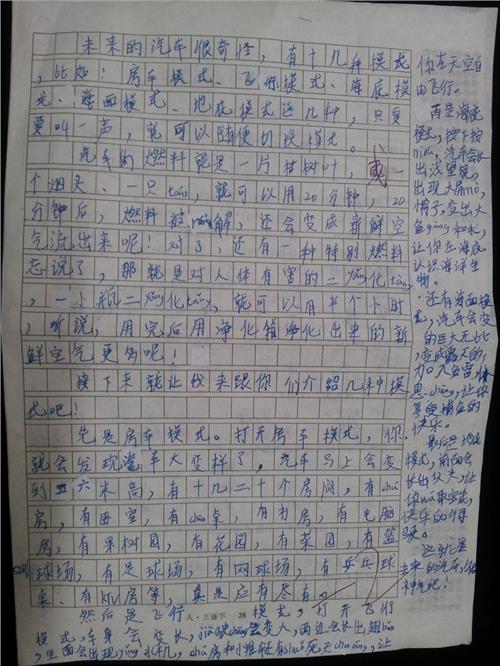 未来的汽车很奇怪，有十几种模式
，比如：房车模式、飞行模式、海底模
式、海面模式、地底模式这几种，只要
要叫一声，就可以随便切换模式。
汽车的燃料就是一片枯树叶，或一
个烟头、一只táo，就可以用20分钟，20
分钟后，燃料被róng解，还会变成新鲜空
气流出来呢！对了，还有一种特别燃料
忘说了，那就是对人体有害的二yǎng化tàn，
一小瓶二yǎng化tàn，就可以用半个小时
，听说，用完后用净化箱净化出来的新
鲜空气更多呢！
接下来就让我来跟你们介绍几种模
式吧！
先是房车模式。打开房车模式，你
就会发现汽车大变样了，汽车马上会变
到五六米高，有十几二十个房间，有chú
房，有卧室，有cān桌，有书房，有电脑
房，有果树园，有花园，有菜园，有篮
球场，有足球场，有网球场，有乒乓球
桌、有KTV房等，真是应有尽有。
人·三语下 28
然后是飞行模式，打开飞行
模式，车身会变长，chì bǎng会变大，两边会长出翅bǎng
，里面会出现yǐn水机，
你在天空自
由飞行。
再是海底
模式，按下按
niǔ，汽车会长
出浅望镜，
出现大屏mò，
让你在海底
认识海洋生
物。
还有海面模
式，汽车会变
的巨大无比，
让你
享受捕鱼的
快乐。
最后是地底
模式，前面会
长出
你wā取宝藏，
快乐的
这就是
未来的汽车，很
神奇吧！